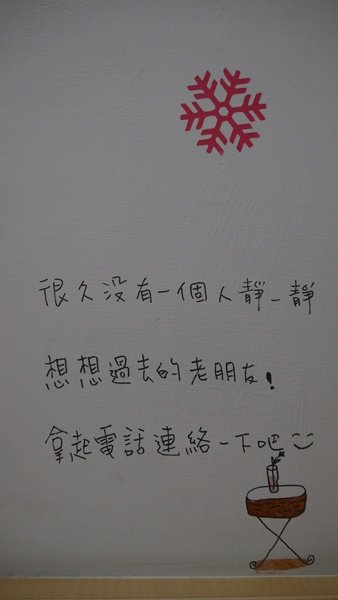 很久没有一個人靜一靜
想想過去的老朋友!
拿起電話連絡一下吧